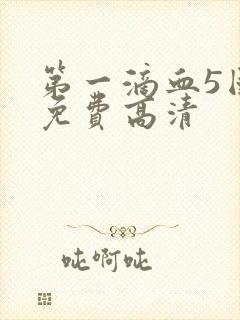 第一滴血5国
免费高清
吡啊吡